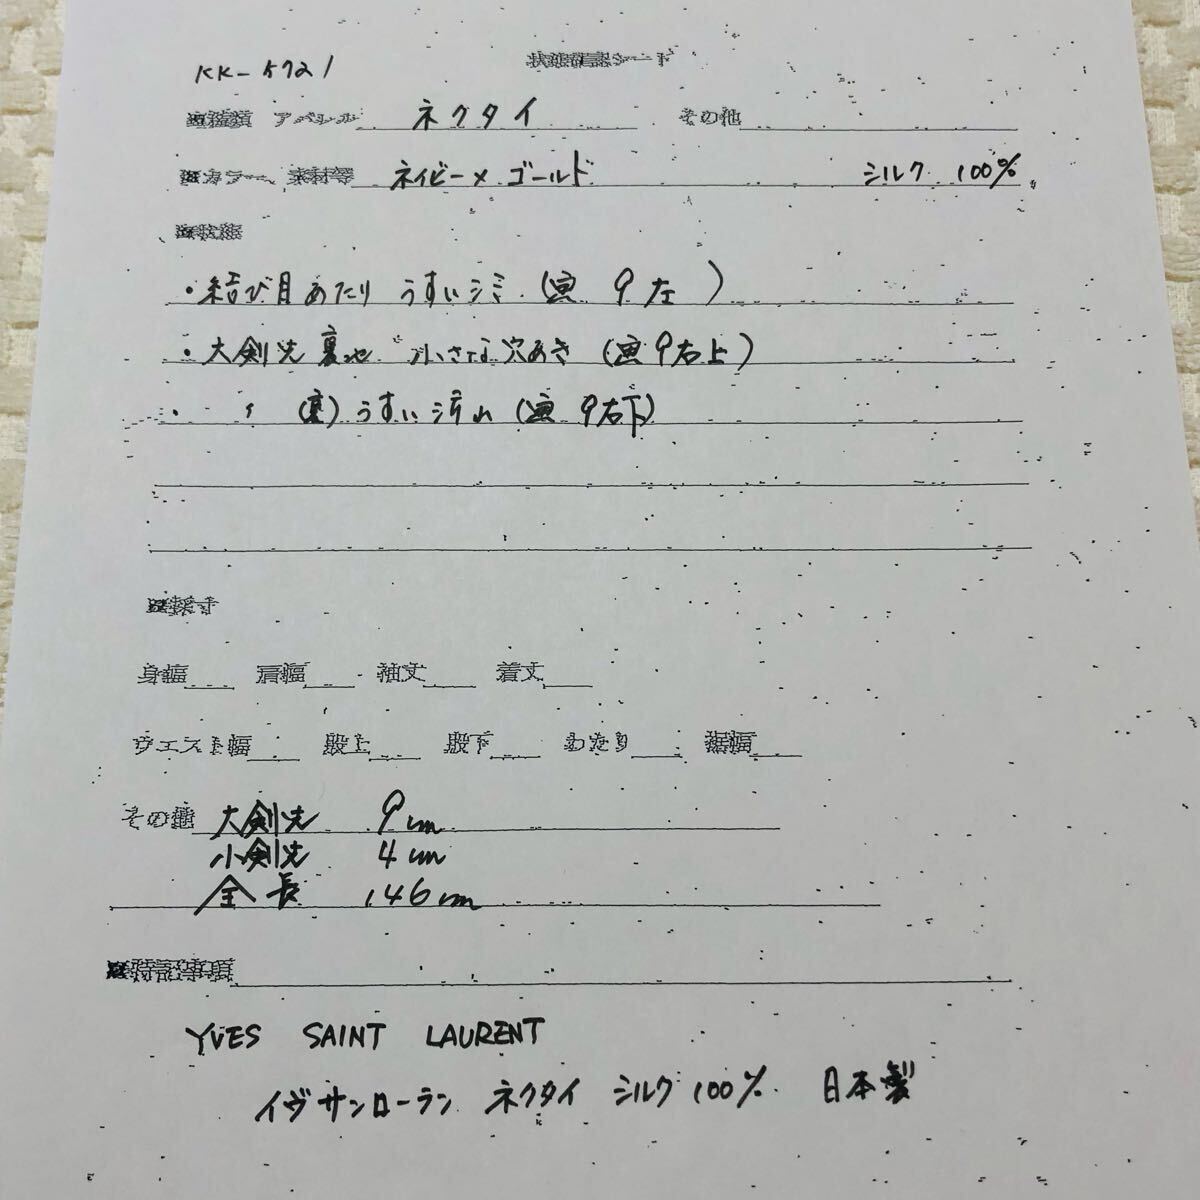 KK-5721
状態確認シート
※種類 アパレル ネクタイ その他
※カラー、素材等 ネイビー×ゴールド シルク 100%
※状態
・結び目あたり うすいシミ (画 9 左 )
・大剣先 裏地 小さな穴あき (画9右上)
・ 〃 (裏) うすい汚れ (画 9右下)
※採寸
身幅 肩幅 袖丈 着丈
ウエスト幅 股上 股下 わたり 裾幅
その他 大剣先 9cm
小剣先 4cm
全長 146cm
※特記事項
YVES SAINT LAURENT
イヴサンローラン ネクタイ シルク 100% 日本製